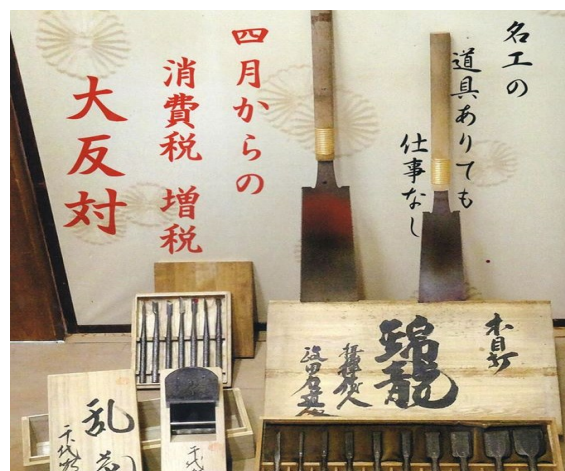 名工の
道具ありても
仕事なし
四月からの
消費税 増税
大反対
木目打
錦龍
乱
千代